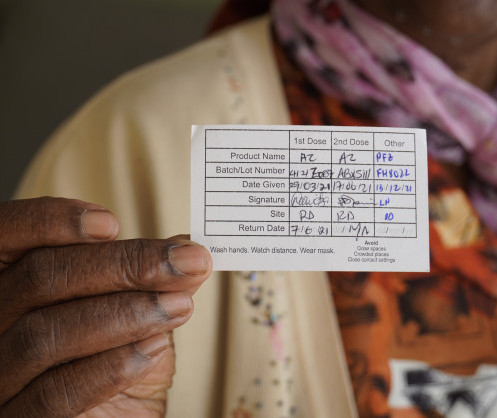 1st Dose 2nd Dose Other
Product Name AZ AZ PFZ
Batch/Lot Number
Date Given 29/03/21 17/06/21 13/12/21
Signature LH
Site RD RD
Return Date 7/6/21 N/A
Wash hands. Watch distance. Wear mask.
Avoid
Close spaces
Crowded places
Close contact settings